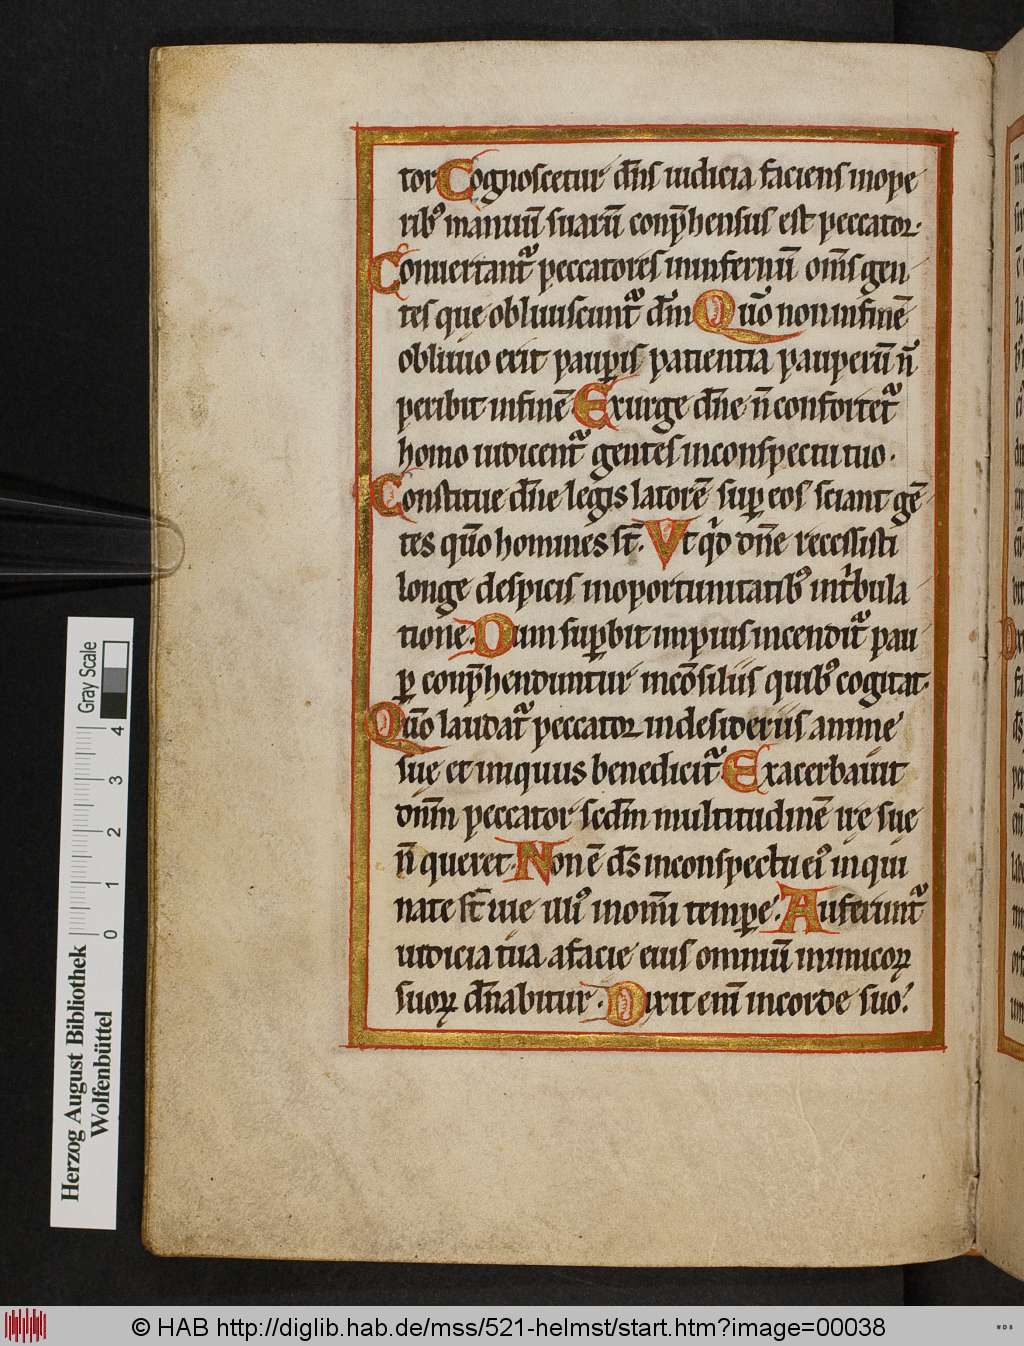 tor Cognoscetur dn̄s iudicia faciens inope
ribꝰ manuū suarū conp̄hensus est peccator.
Conuertantᷣ peccatores ininfernū om̄s gen
tes que obliuiscuntᷣ dm̄ Qm̄o non infinē
obliuio erit paupis patientia pauperū n̄
peribit infinē Exurge dn̄e n̄ confortetᷣ
homo iudicentᷣ gentes inconspectu tuo.
Constitue dn̄e legis latorē sup eos sciant gē
tes qm̄o homines st̄. Vt qͥd dn̄e recessisti
longe despicis inoportunitatibꝰ intͥbula
tione. Dum supbit impius incenditᷣ pau
ꝑ conp̄henduntur incōsiliis quibꝰ cogitat.
Qm̄o laudatᷣ peccator indesideriis anime
suę et iniquus benedicitᷣ Exacerbauit
dn̄m peccator scdm̄ multitudinē irę suę
n̄ queret. Non ē ds̄ inconspectu eiꝰ inqui
nate st̄ uie illiꝰ inom̄i tempe. Auferuntᷣ
iudicia tua afacie eius omniū inimicoꝝ
suoꝝ dn̄abitur. Dixit eni̅ incorde suo.
Herzog August Bibliothek
Wolfenbüttel
Gray Scale
0 1 2 3 4
© HAB http://diglib.hab.de/mss/521-helmst/start.htm?image=00038